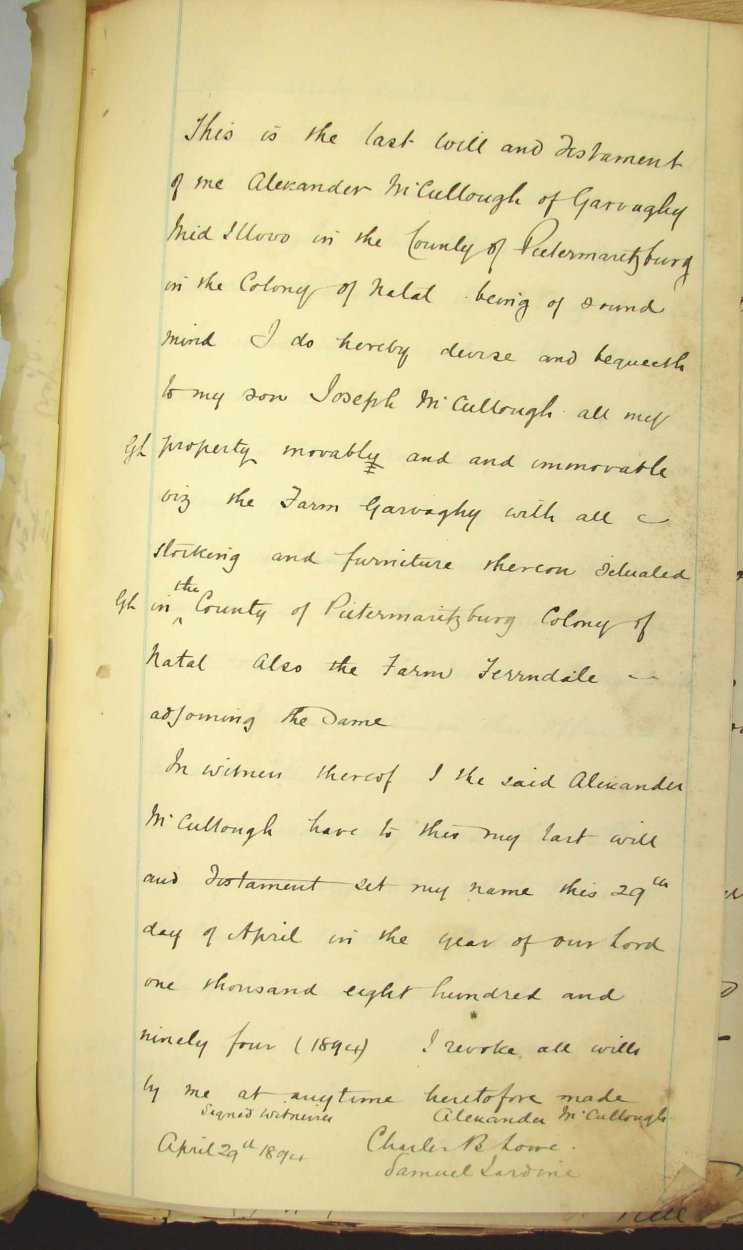 This is the last will and Testament
of me Alexander McCullough of Garvaghy
Mid Illovo in the County of Pietermaritzburg
in the Colony of Natal being of sound
mind I do hereby devise and bequeath
to my son Joseph McCullough all my
Gh property movably and and immovable
viz the Farm Garvaghy with all
stocking and furniture thereon situated
Gh in the County of Pietermaritzburg Colony of
Natal Also the Farm Ferrndale
adjoining the Same
In witness thereof I the said Alexander
McCullough have to this my last will
and Testament set my name this 29th
day of April in the year of our Lord
one thousand eight hundred and
ninely four (1894) I revoke all wills
by me at anytime heretofore made
Signed Witnesses Alexander McCullough
April 29th 1894 Charles B Lowe
Samuel